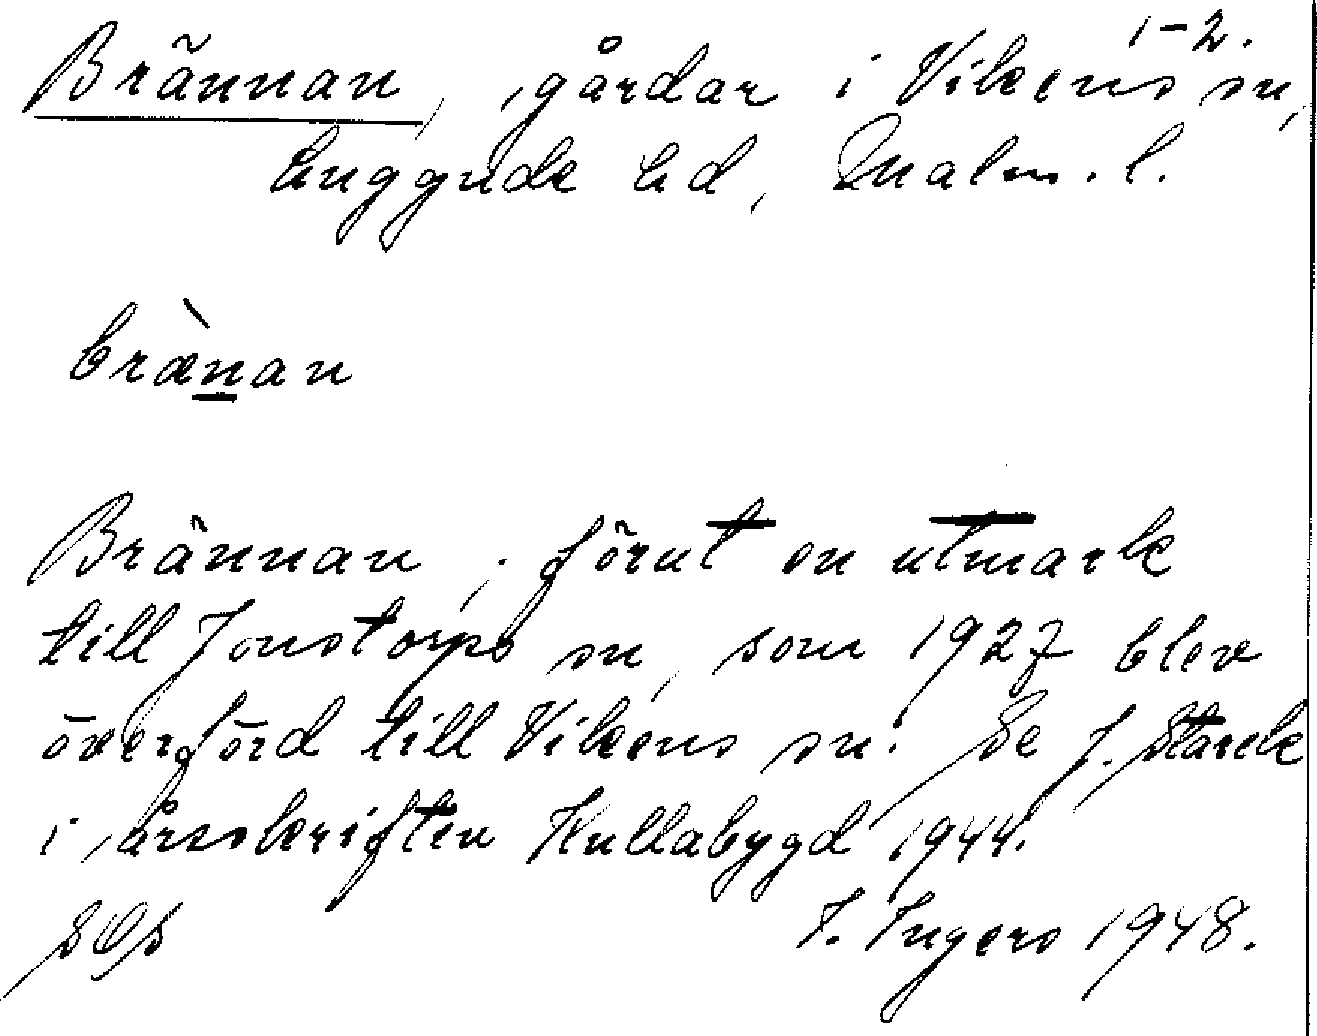 1-2.
Brännan, gårdar i Vikens sn,
Luggude hd, Malm. l.
bræ̀nan
Brännan, förut en utmark
till Jonstorps sn, som 1927 blev
överförd till Vikens sn. Se J. Starck
i årsskriften Kullabygd 1944.
SOS I. Ingers 1948.